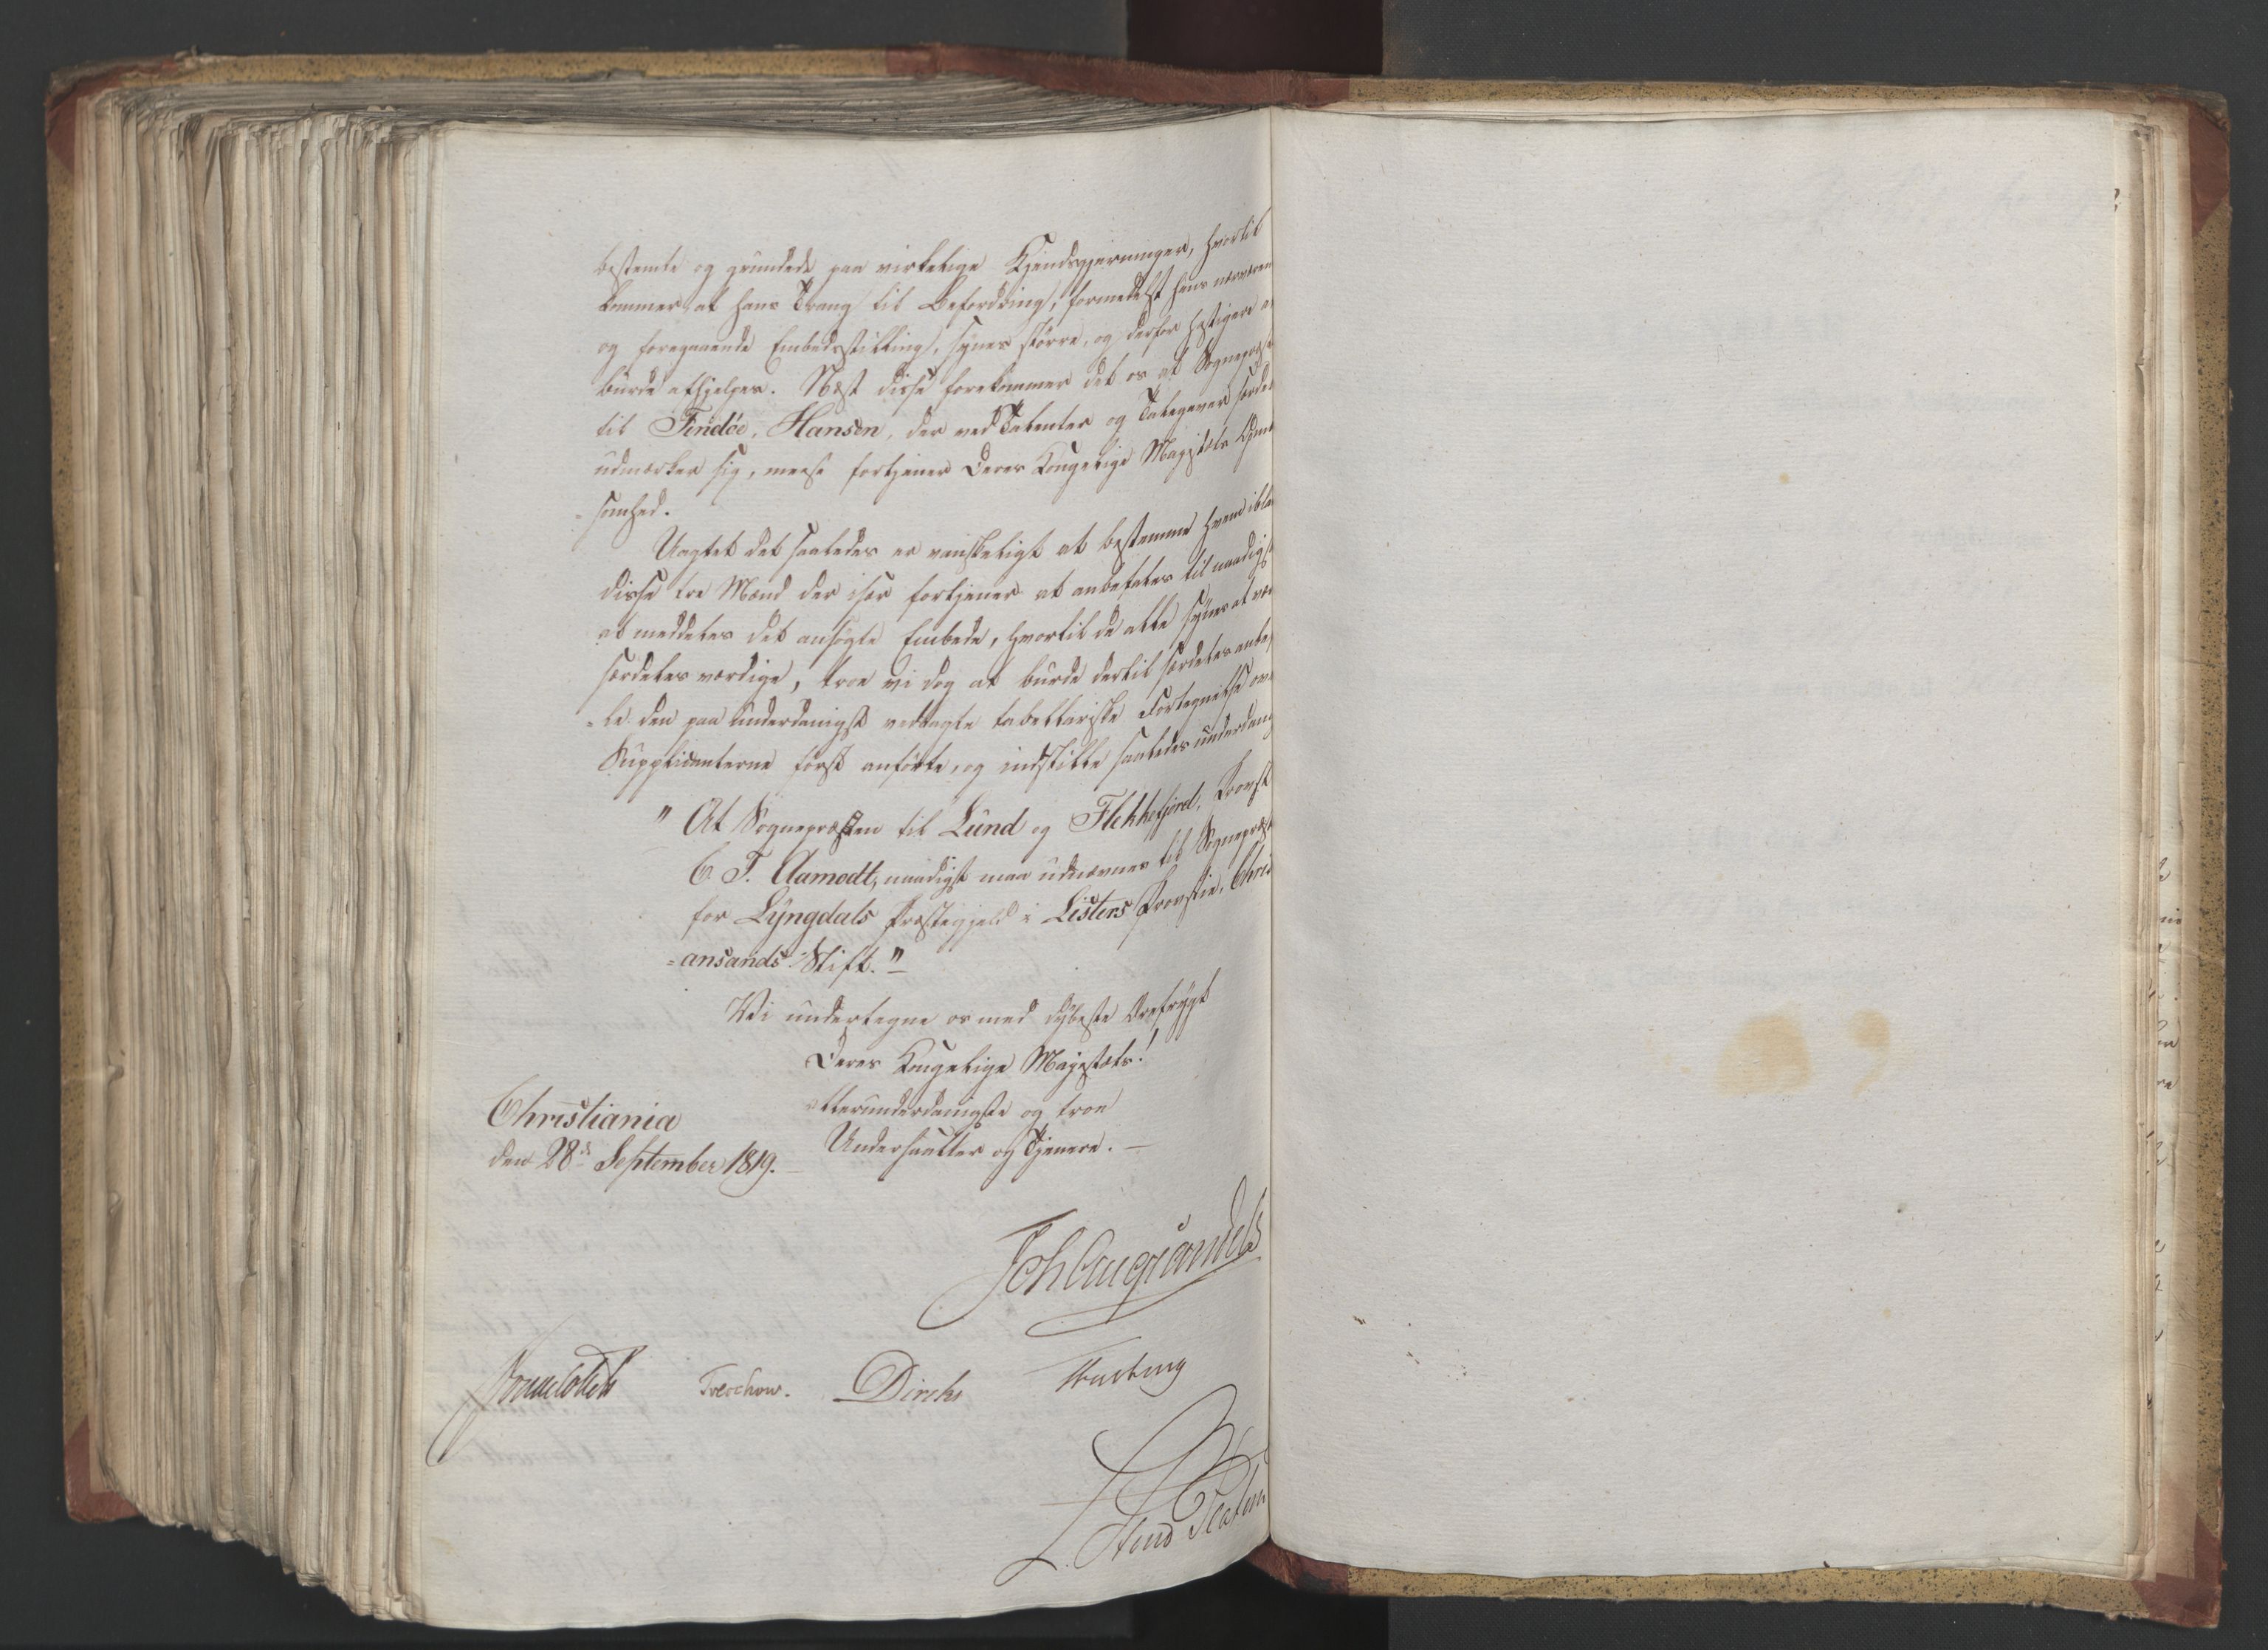 bestemte og grundede paa virkelige Kjendsgjerninger, hvortil
kommer at hans Trang til Befordring, formedelst hans nærværen
og foregaaende Embedsstilling, synes större, og derfor hastigere
burde afhjelpes. Næst disse forekommer det os at Sognepræst
til Findöe, Hansen, der ved Talenter og Talegaver særdel
udmærker sig, meest fortjener Deres Kongelige Majestæts Opm
=somhed.
Uagtet det saaledes er vanskeligt at bestemme hvem ibla
disse tre Mænd der især fortjener at anbefales til naadigst
at meddeles det ansögte Embede, hvortil de alle synes at vær
særdeles værdige, troe vi dog at burde dertil særdeles anbe
=le den paa underdanigst vedlagte tabellariske Fortegnelse ov
Supplicanterne först anförte, og indstille saaledes underdanig
" At Sognepræsten til Lund og Flekkefjord, Provst
C. T. Aamodt, naadigst maa udnævnes til Sognepræst
for Lyngdals Præstegjeld i Listers Provstie, Chris
=ansands Stift."
Vi undertegne os med dybeste Ærefrygt
Deres Kongelige Majestæts!
allerunderdanigste og troe
Undersaatter og Tjenere.
Christiania
den 28de September 1819.
Joh Aug Sandels
Sommerhielm Treschow. Diriks Motzfeldt